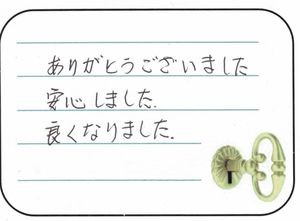 ありがとうございました
安心しました.
良くなりました.